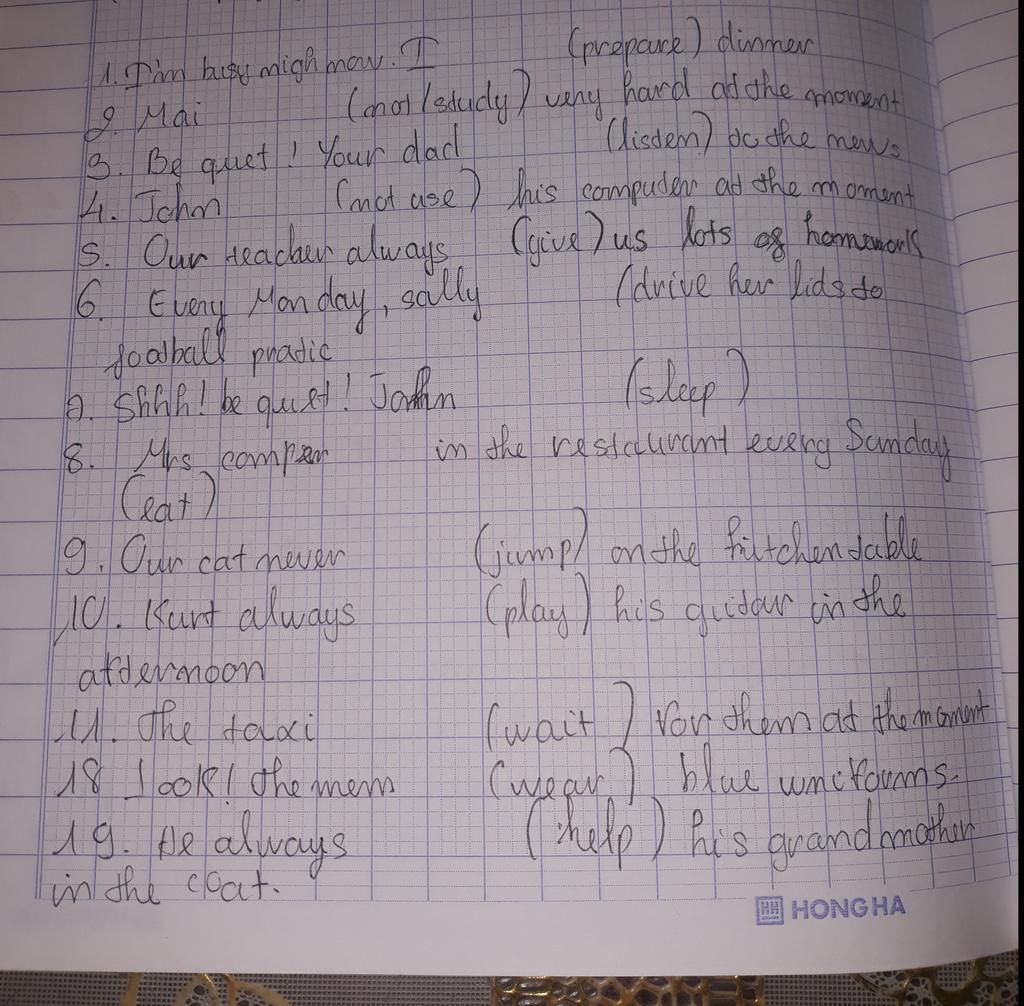 1. I'm busy night now. I (prepare) dinner
2. Mai (not/study) very hard at the moment
3. Be quet! Your dad (listen) to the news
4. John (not use) his computer at the moment
5. Our teacher always (give) us lots of homework
6. Every Monday, sally (drive her kids to
football practic
7. Shhh! be quet! John (sleep)
8. Mrs in the restaurant every Sunday
(eat)
9. Our cat never (jump) on the kitchen table
10. Kurt always (play) his guitar in the
afternoon
11. The taxi (wait) for them at the moment
18 Look! The men (wear) blue
19. He always (help) his grandmother
in the
HH HONG HA